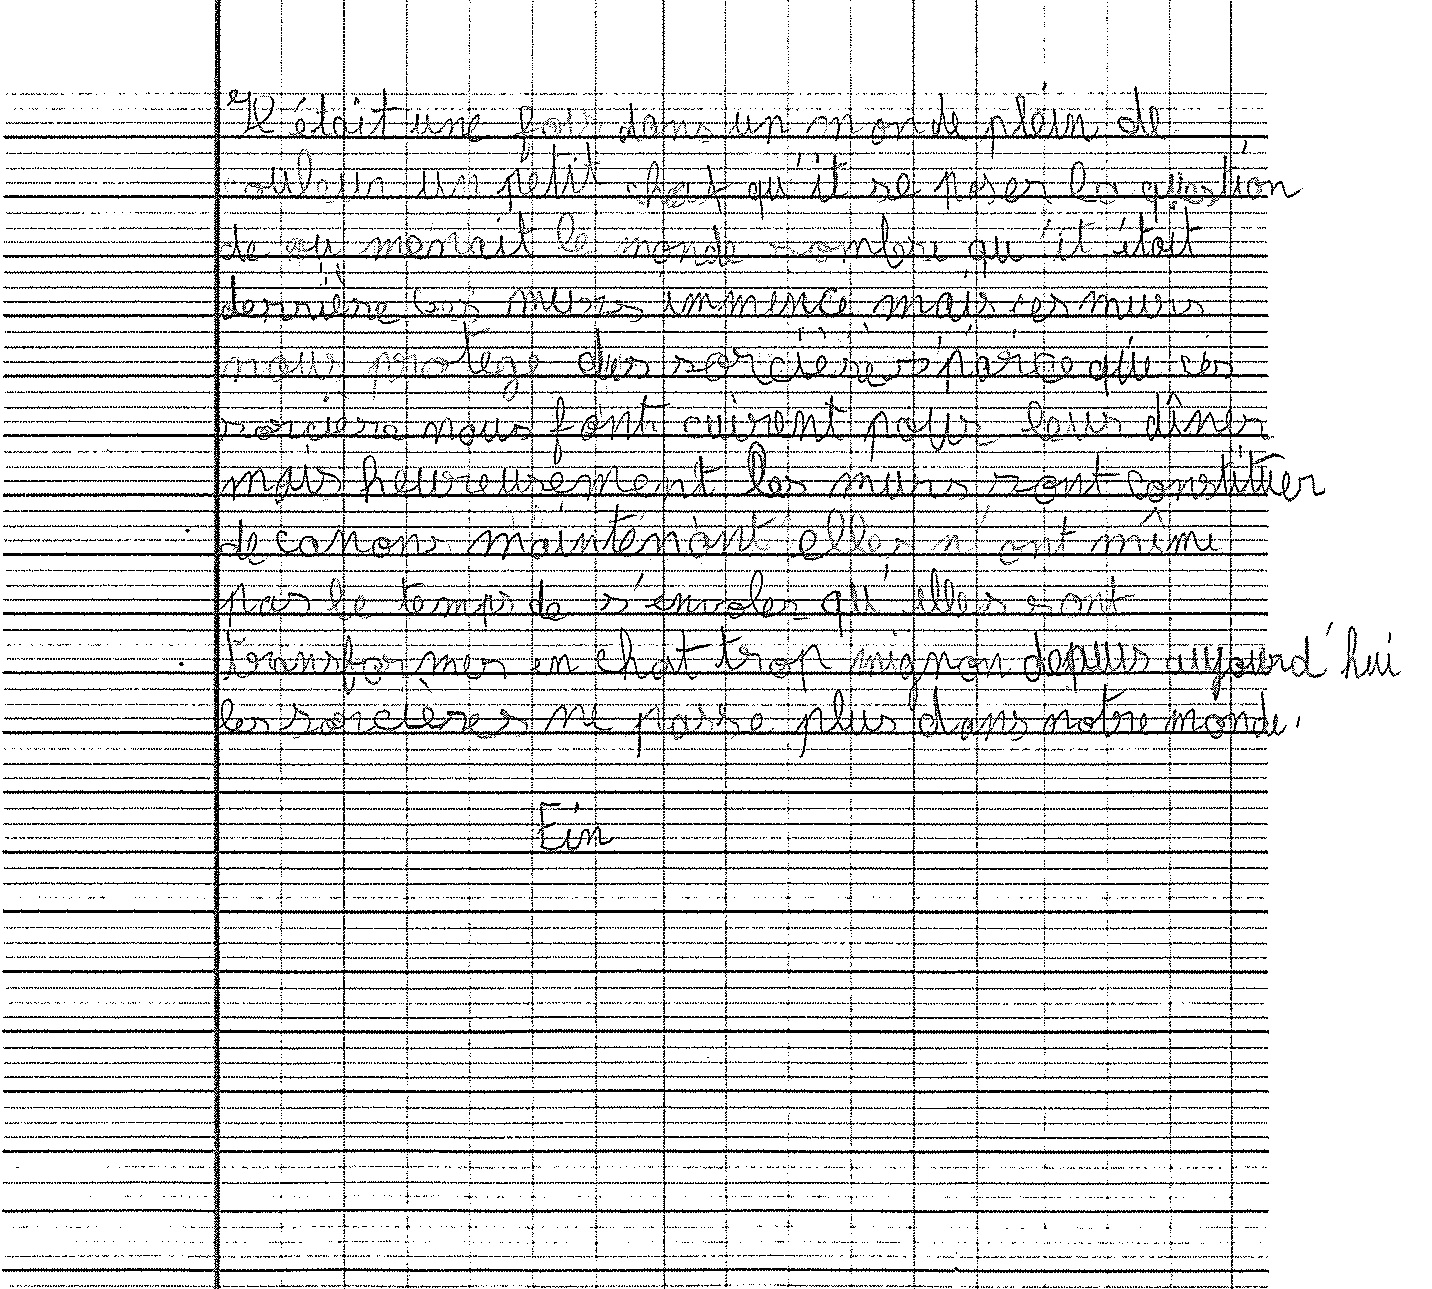 Il était une fois dans un monde plein de
couleur un petit chat qu'it se poser la question
de ou menait le monde sombre qu'it était
derrière ces murs immence mais ces murs
nous protege des sorcières parce que ces
sorcière nous font cuirent pour leur dîner
mais heureusement les murs sont constituer
de canons maintenant elles n'ont même
pas le temps de s'envoler qu'elles sont
transformer en chat trop mignon depuis aujourd'hui
les sorcières ne passe plus dans notre monde.
Fin